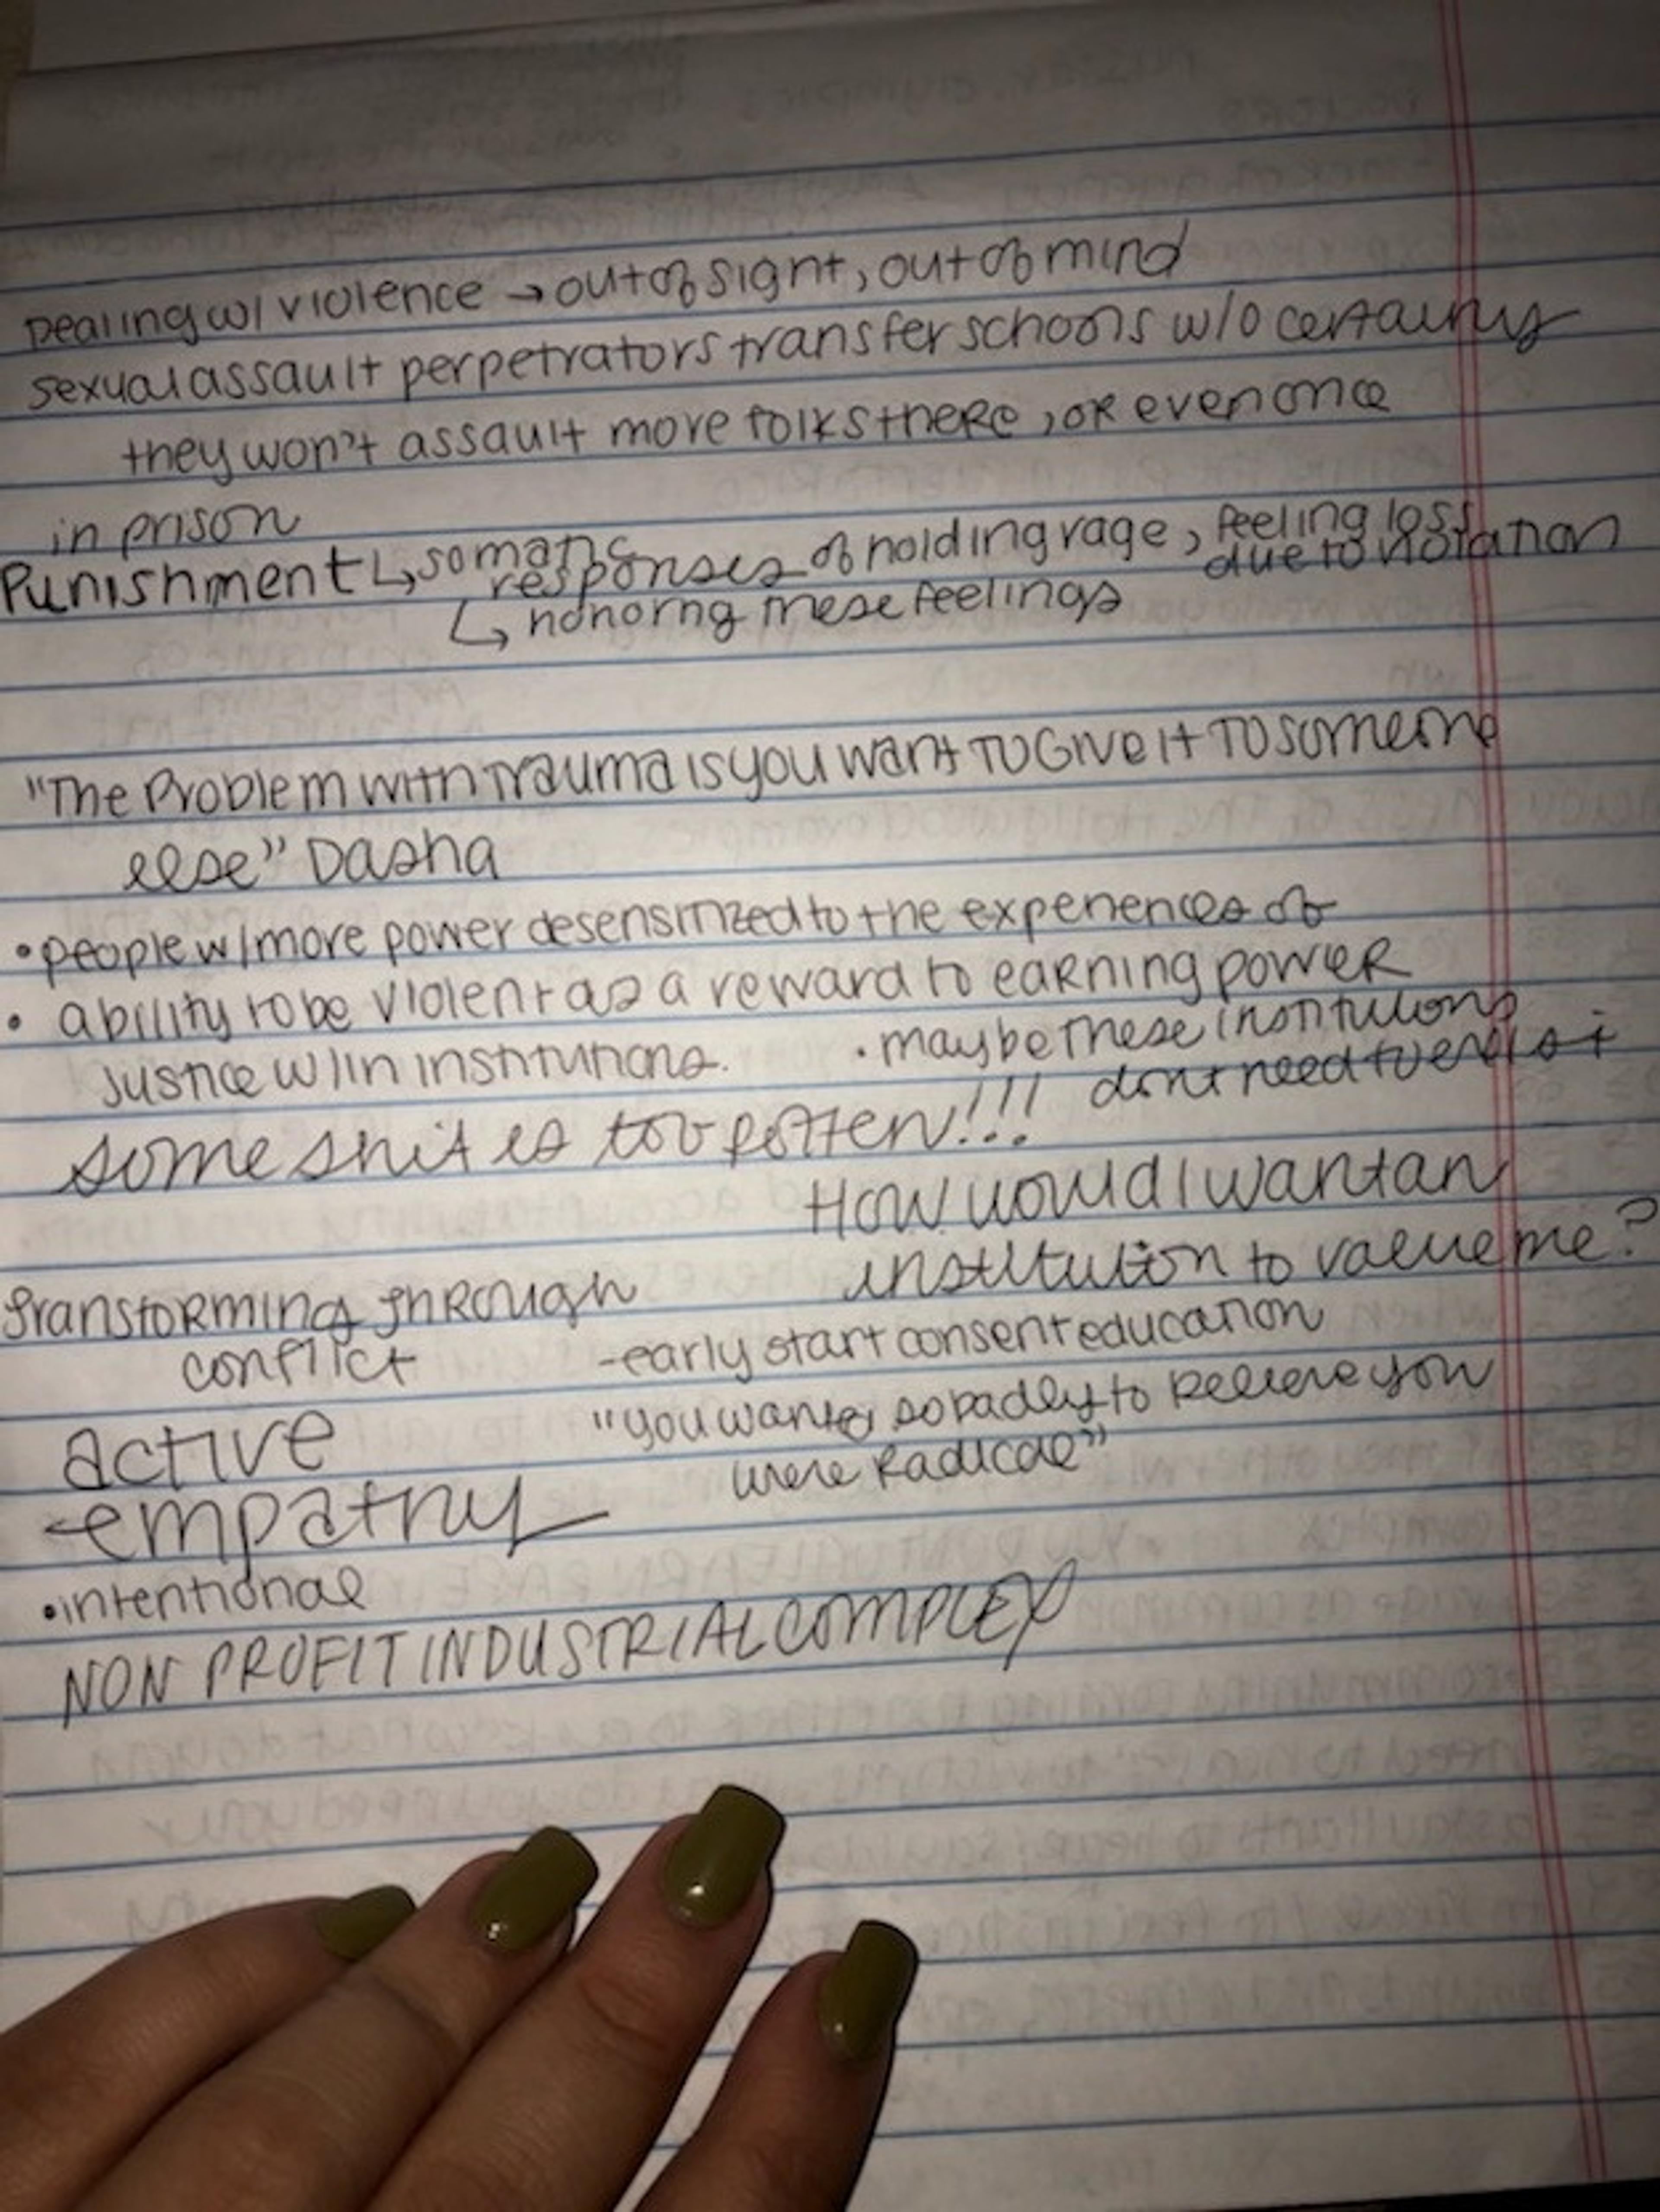 Dealing w/ violence → out of sight, out of mind
sexual assault perpetrators transfer schools w/o certainty
they won't assault more folks there, or even once
in prison
Punishment ↳ somatic responses of holding rage, feeling loss due to violation
↳ honorng these feelings
"The Problem with Trauma is you want to Give it to someone
else" Dasha
• people w/ more power desensitized to the experiences of
• ability to be violent as a reward to earning power
Justice w/in institutions.
• maybe these institutions
dont need to exist
some shit is too rotten!!!
How would I want an
institution to value me?
Transforming through
conflict
- early start consent education
"you wanted so badly to believe you
were radical"
active
empathy
• intentional
NON PROFIT INDUSTRIAL COMPLEX